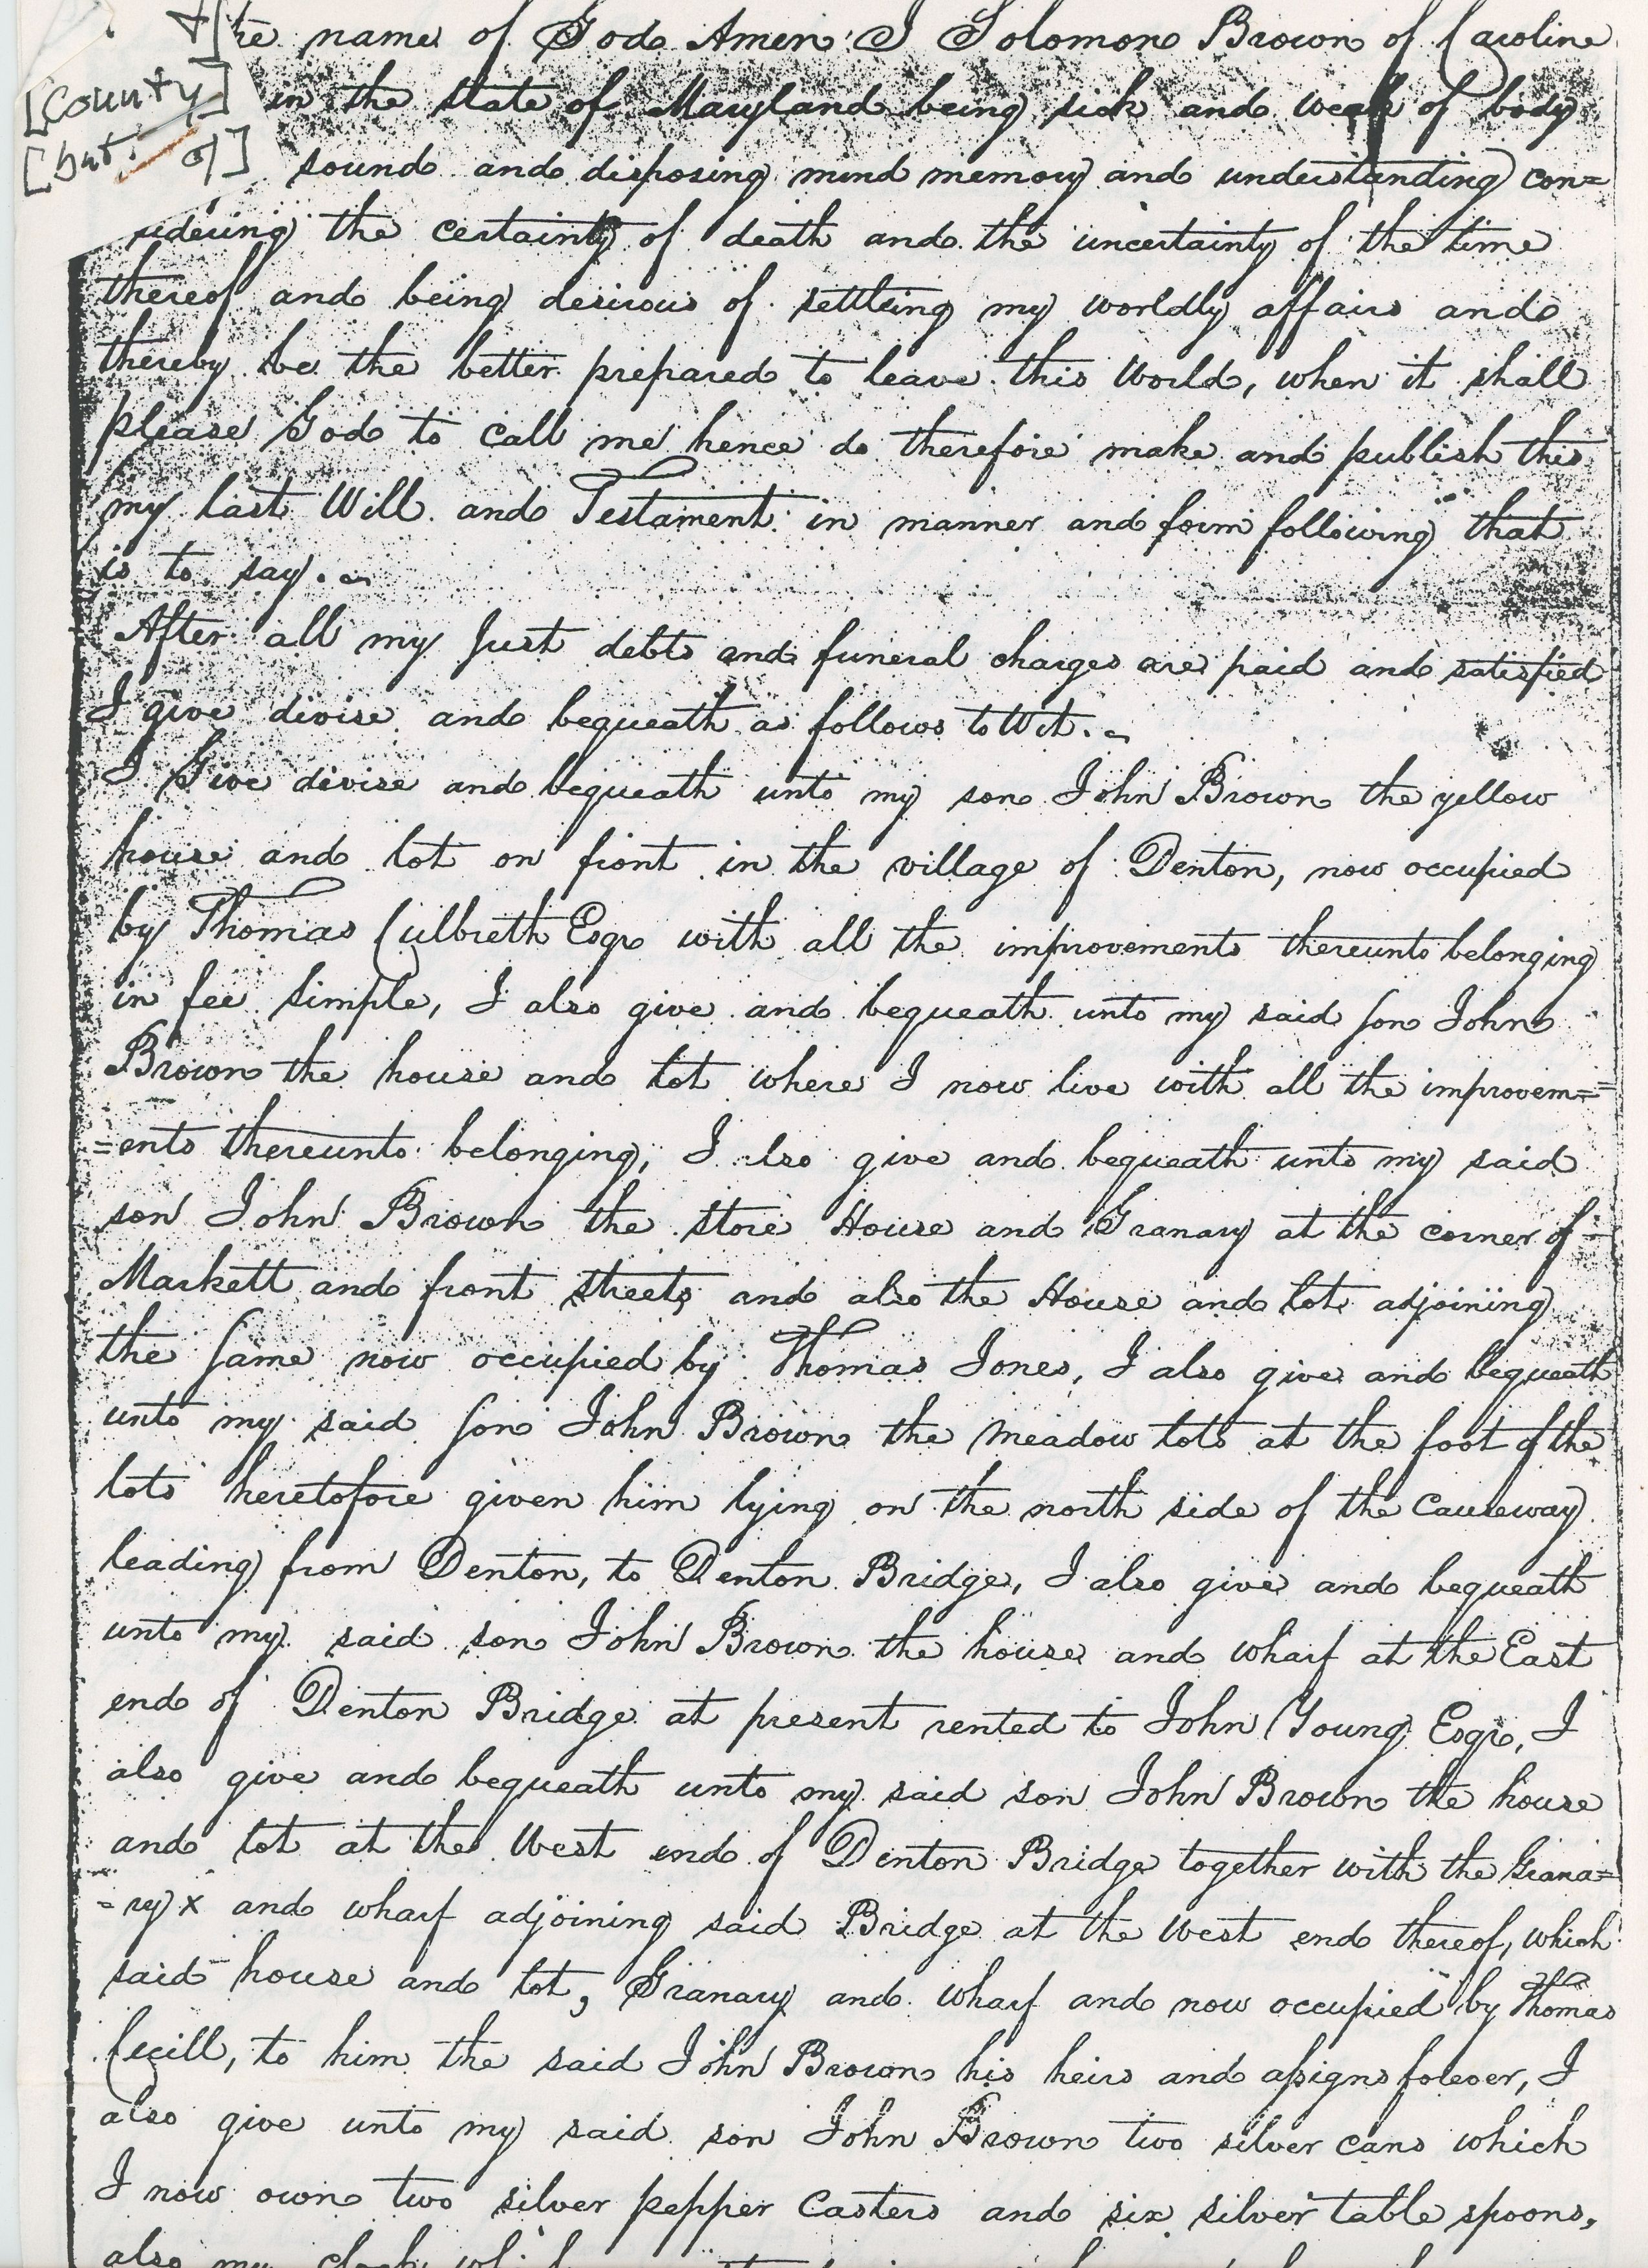 the name of God Amen I Solomon Brown of Caroline
[County] in the state of Maryland being sick and weak of body
[but of] sound and disposing mind memory and understanding con=
sidering the certainty of death and the uncertainty of the time
thereof and being desirous of settling my worldly affairs and
thereby be the better prepared to leave this World, when it shall
please God to call me hence do therefore make and publish this
my last Will and Testament in manner and form following that
is to say.
After all my Just debts and funeral charges are paid and satisfied
I give divise and bequeath as follows to Wit.
I Give divise and bequeath unto my son John Brown the yellow
house and lot on front in the village of Denton, now occupied
by Thomas Culbreth Esqr with all the improvements thereunto belonging
in fee simple, I also give and bequeath unto my said son John
Brown the house and lot where I now live with all the improvem=
=ents thereunto belonging, I also give and bequeath unto my said
son John Brown the store House and Granary at the corner of
Markett and front streets and also the House and lots adjoining
the same now occupied by Thomas Jones, I also give and bequeath
unto my said son John Brown the meadow lots at the foot of the
lots heretofore given him lying on the north side of the Causeway
leading from Denton, to Denton Bridge, I also give and bequeath
unto my said son John Brown the house and wharf at the East
end of Denton Bridge at present rented to John Young Esqr, I
also give and bequeath unto my said son John Brown the house
and lot at the West end of Denton Bridge together with the Grana=
=ry x and wharf adjoining said Bridge at the West end thereof, which
said house and lot, Granary and wharf and now occupied by Thomas
to him the said John Brown his heirs and assigns forever, I
also give unto my said son John Brown two silver cans which
I now own two silver pepper Casters and six silver table spoons,
also my clock